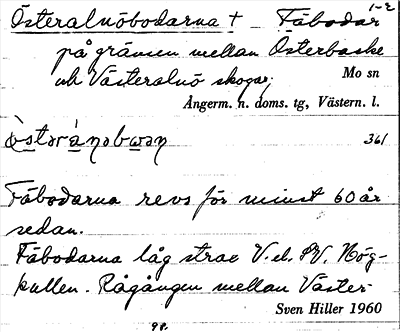 Österalnöbodarna † Fäbodar 1-2
på gränsen mellan Österbacke
och Västeralnö skogar,
Mo sn
Ångerm. n. doms. tg, Västern. l.
361
Fäbodarna revs för minst 60 år
sedan.
Fäbodarna låg strax V. el. SV. Hög-
kullen. Rågången mellan Väster-
Sven Hiller 1960
98.